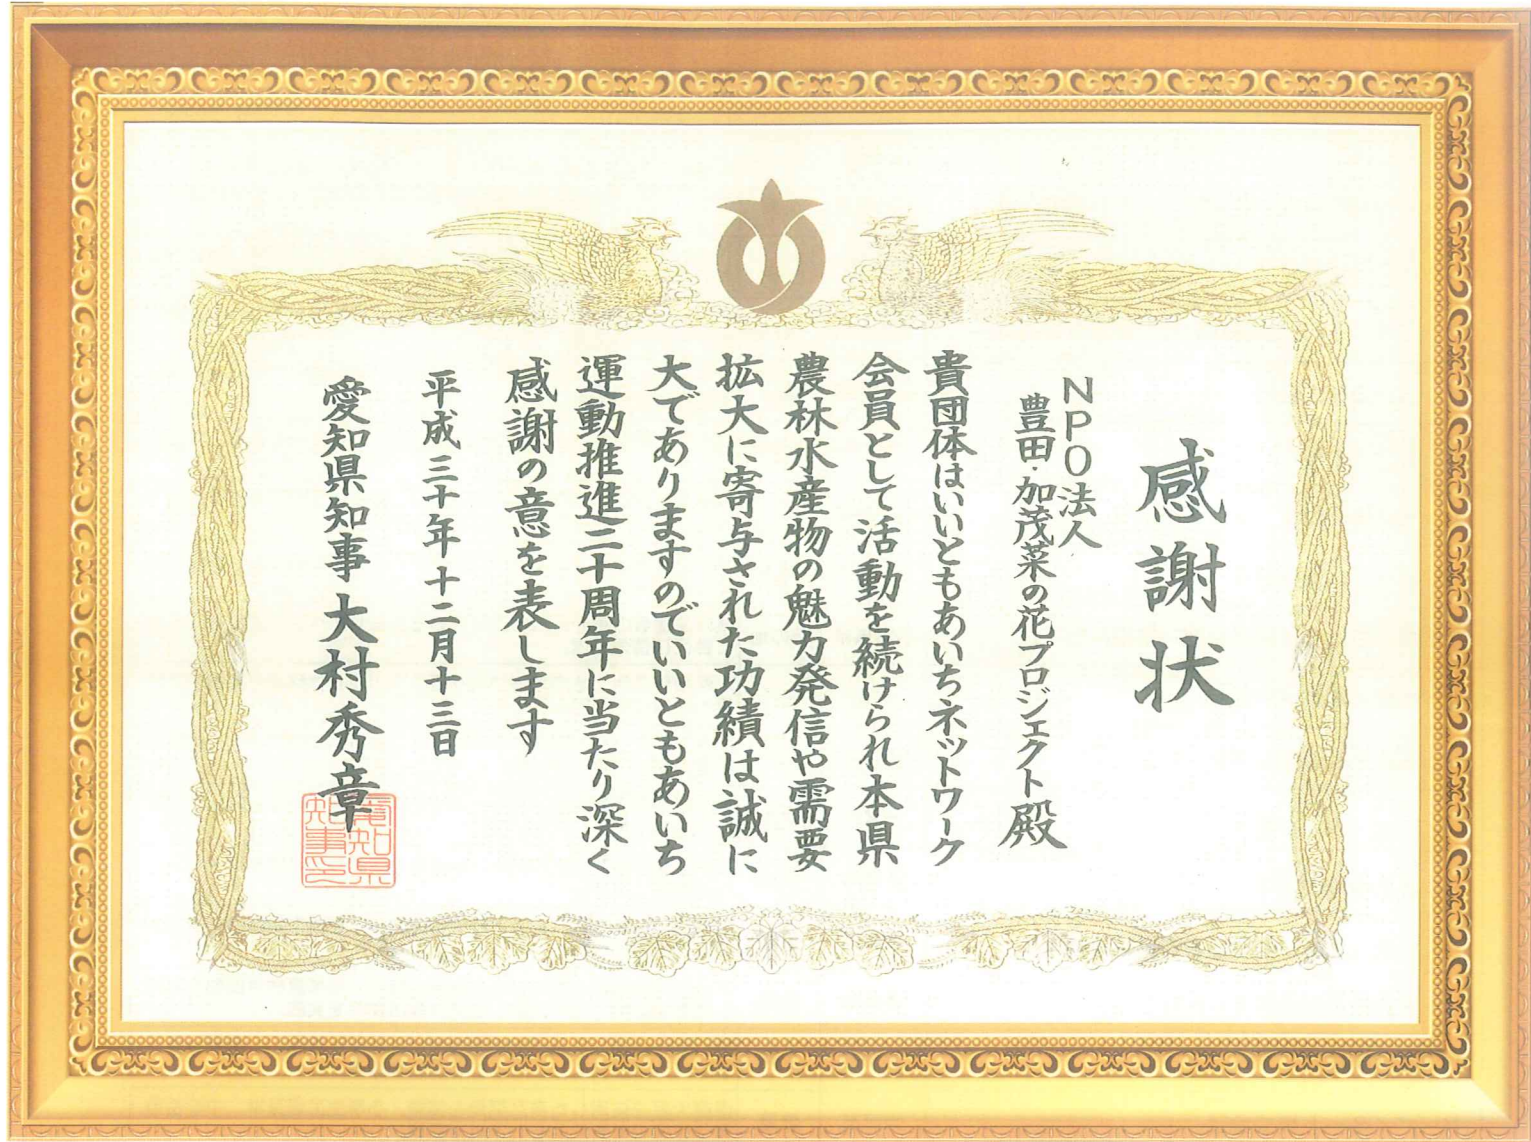 感謝状
NPO法人
豊田・加茂菜の花プロジェクト 殿
貴団体はいいともあいちネットワーク
会員として活動を続けられ本県
農林水産物の魅力発信や需要
拡大に寄与された功績は誠に
大でありますのでいいともあいち
運動推進二十周年に当たり深く
感謝の意を表します
平成三十年十二月十三日
愛知県知事 大村秀章
愛知県
知事印